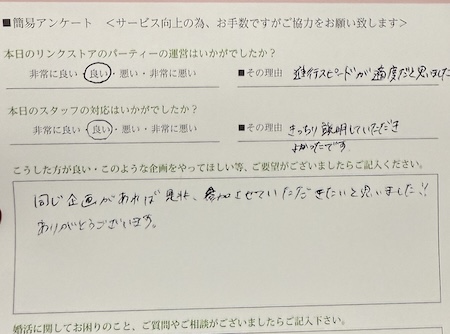 ■簡易アンケート <サービス向上の為、お手数ですがご協力をお願い致します>
本日のリンクストアのパーティーの運営はいかがでしたか?
非常に良い・良い・悪い・非常に悪い ■その理由 進行スピードが適度だと思いました
本日のスタッフの対応はいかがでしたか?
非常に良い・良い・悪い・非常に悪い ■その理由 きっちり説明していただき
よかったです。
こうした方が良い・このような企画をやってほしい等、ご要望がございましたらご記入ください。
同じ企画があれば是非、参加させていただきたいと思いました!!
ありがとうございます。
婚活に関してお困りのこと、ご質問やご相談がございましたらご記入下さい。